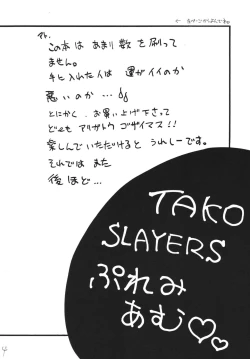 この本は あまり 数 を 刷って
ません。
手に入れた人は 運がイイのか
悪いのか…
とにかく、お買い上げ下さって
どーも アリガトウ ゴザイマス!!
楽しんでいただけると うれしーです。
それでは また
後ほど…
TAKO
SLAYERS
ぷれみ
あむ♡♡